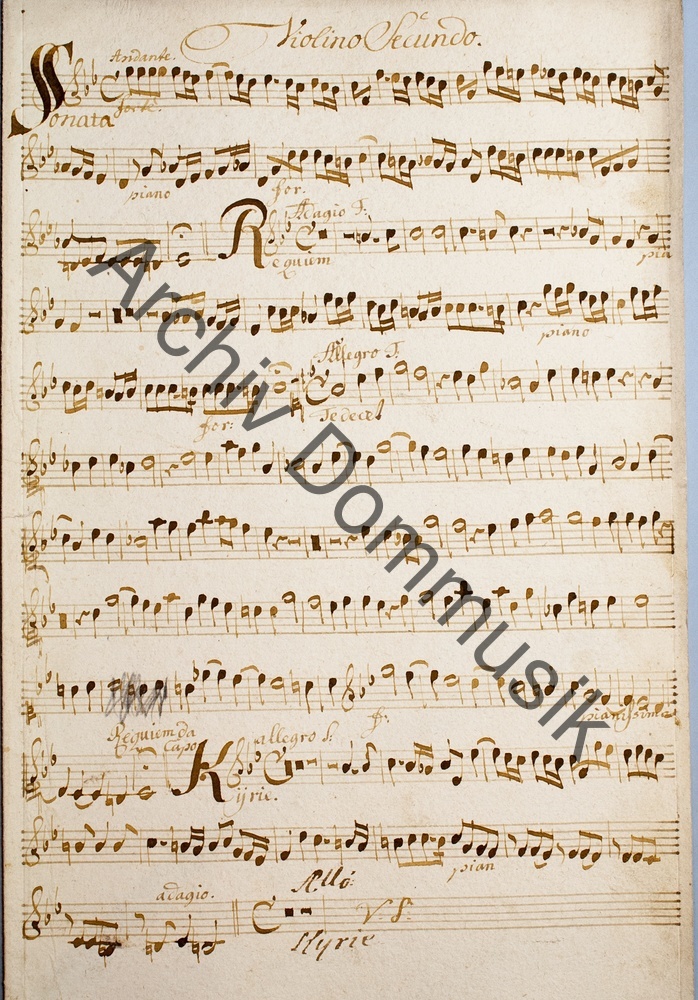 Violino Secundo.
Andante.
Sonata
forte.
piano
for.
Adagio T.
Requiem
pia
piano
Allegro T.
for:
Te decet
f.
pianissime
Requiem da
Capo
allegro
Kyrie.
pian
adagio.
Allo:
V. S.
Kyrie
Archiv Dommusik